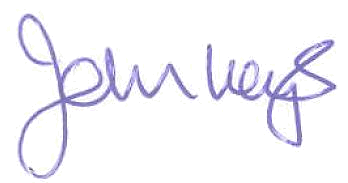 John Keys